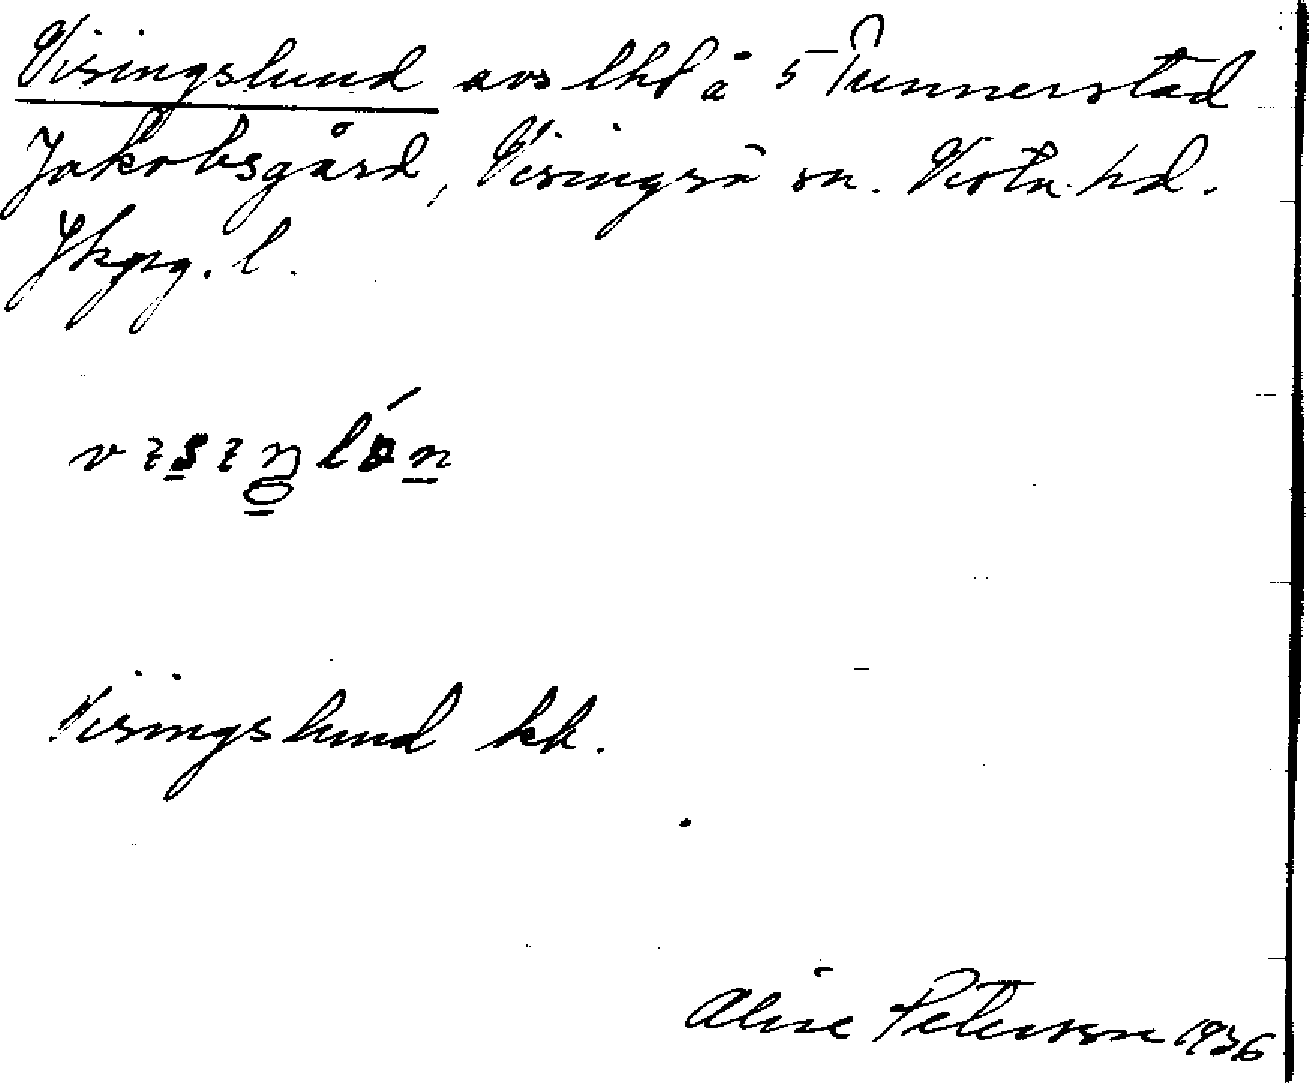 Visingslund avs lht å 5 Tunnerstad
Jakobsgård, Visingsö sn. Vista hd.
Jkpg. l.
Visingslund kk.
Aline Petersson 1936